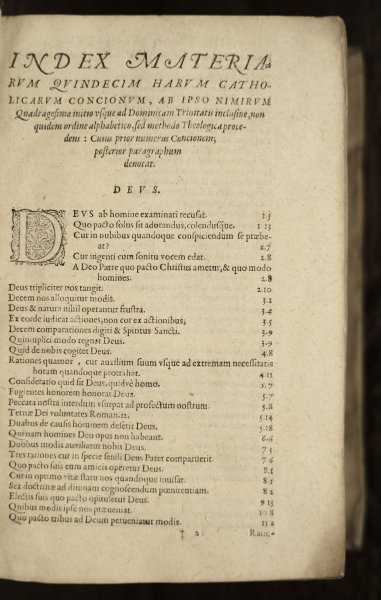 INDEX MATERIA-
RVM QVINDECIM HARVM CATHO-
LICARVM CONCIONVM, AB IPSO NIMIRVM
Quadragesimæ initio vsque ad Dominicam Trinitatis inclusiue, non
quidem ordine alphabetico, sed methodo Theologica proce-
dens: Cuius prior numerus Concionem;
posterior paragraphum
denotat.
DEVS.
DEVS ab homine examinari recusat. 1.5
Quo pacto solus sit adorandus, colendusque. 1 13
Cur in nubibus quandoque conspiciendum se præbe-
at? 2.7
Cur ingenti cum sonitu vocem edat. 2.8
A Deo Patre quo pacto Christus ametur, & quo modo
homines. 2.8
Deus tripliciter nos tangit. 2.10
Decem nos alloquitur modis. 3.1
Deus & natura nihil operantur frustra. 3.4
Ex corde iudicat actiones, non cor ex actionibus. 3.5
Decem comparationes digiti & Spiritus Sancti. 3.9
Quintuplici modo regnat Deus. 3.9
Quid de nobis cogitet Deus. 4.8
Rationes quatuor, cur auxilium suum vsque ad extremam necessitatis
horam quandoque protrahat. 4 11
Consideratio quid sit Deus, quidve homo. 5.7
Fugientes honorem honorat Deus. 5.7
Peccata nostra interdum vsurpat ad profectum nostrum. 5.8
Ternæ Dei voluntates Roman. 12. 5.14
Duabus de causis hominem deserit Deus. 5.18
Qui nam homines Deo opus non habeant. 6.6
Duobus modis auxiliatur nobis Deus. 7 5
Tres rationes cur in specie senili Deus Pater comparuerit. 7 6
Quo pacto suis cum amicis operetur Deus. 8.1
Cur in optimo vitæ statu nos quandoque inuisat. 8.1
Sex doctrinæ ad diuinam cognoscendum pœnitentiam. 8 2
Electis suis quo pacto opituletur Deus. 9 13
Quibus modis ipse nos præueniat. 10 8
Quo pacto tribus ad Deum perueniatur modis. 11 2
† a Ratio-